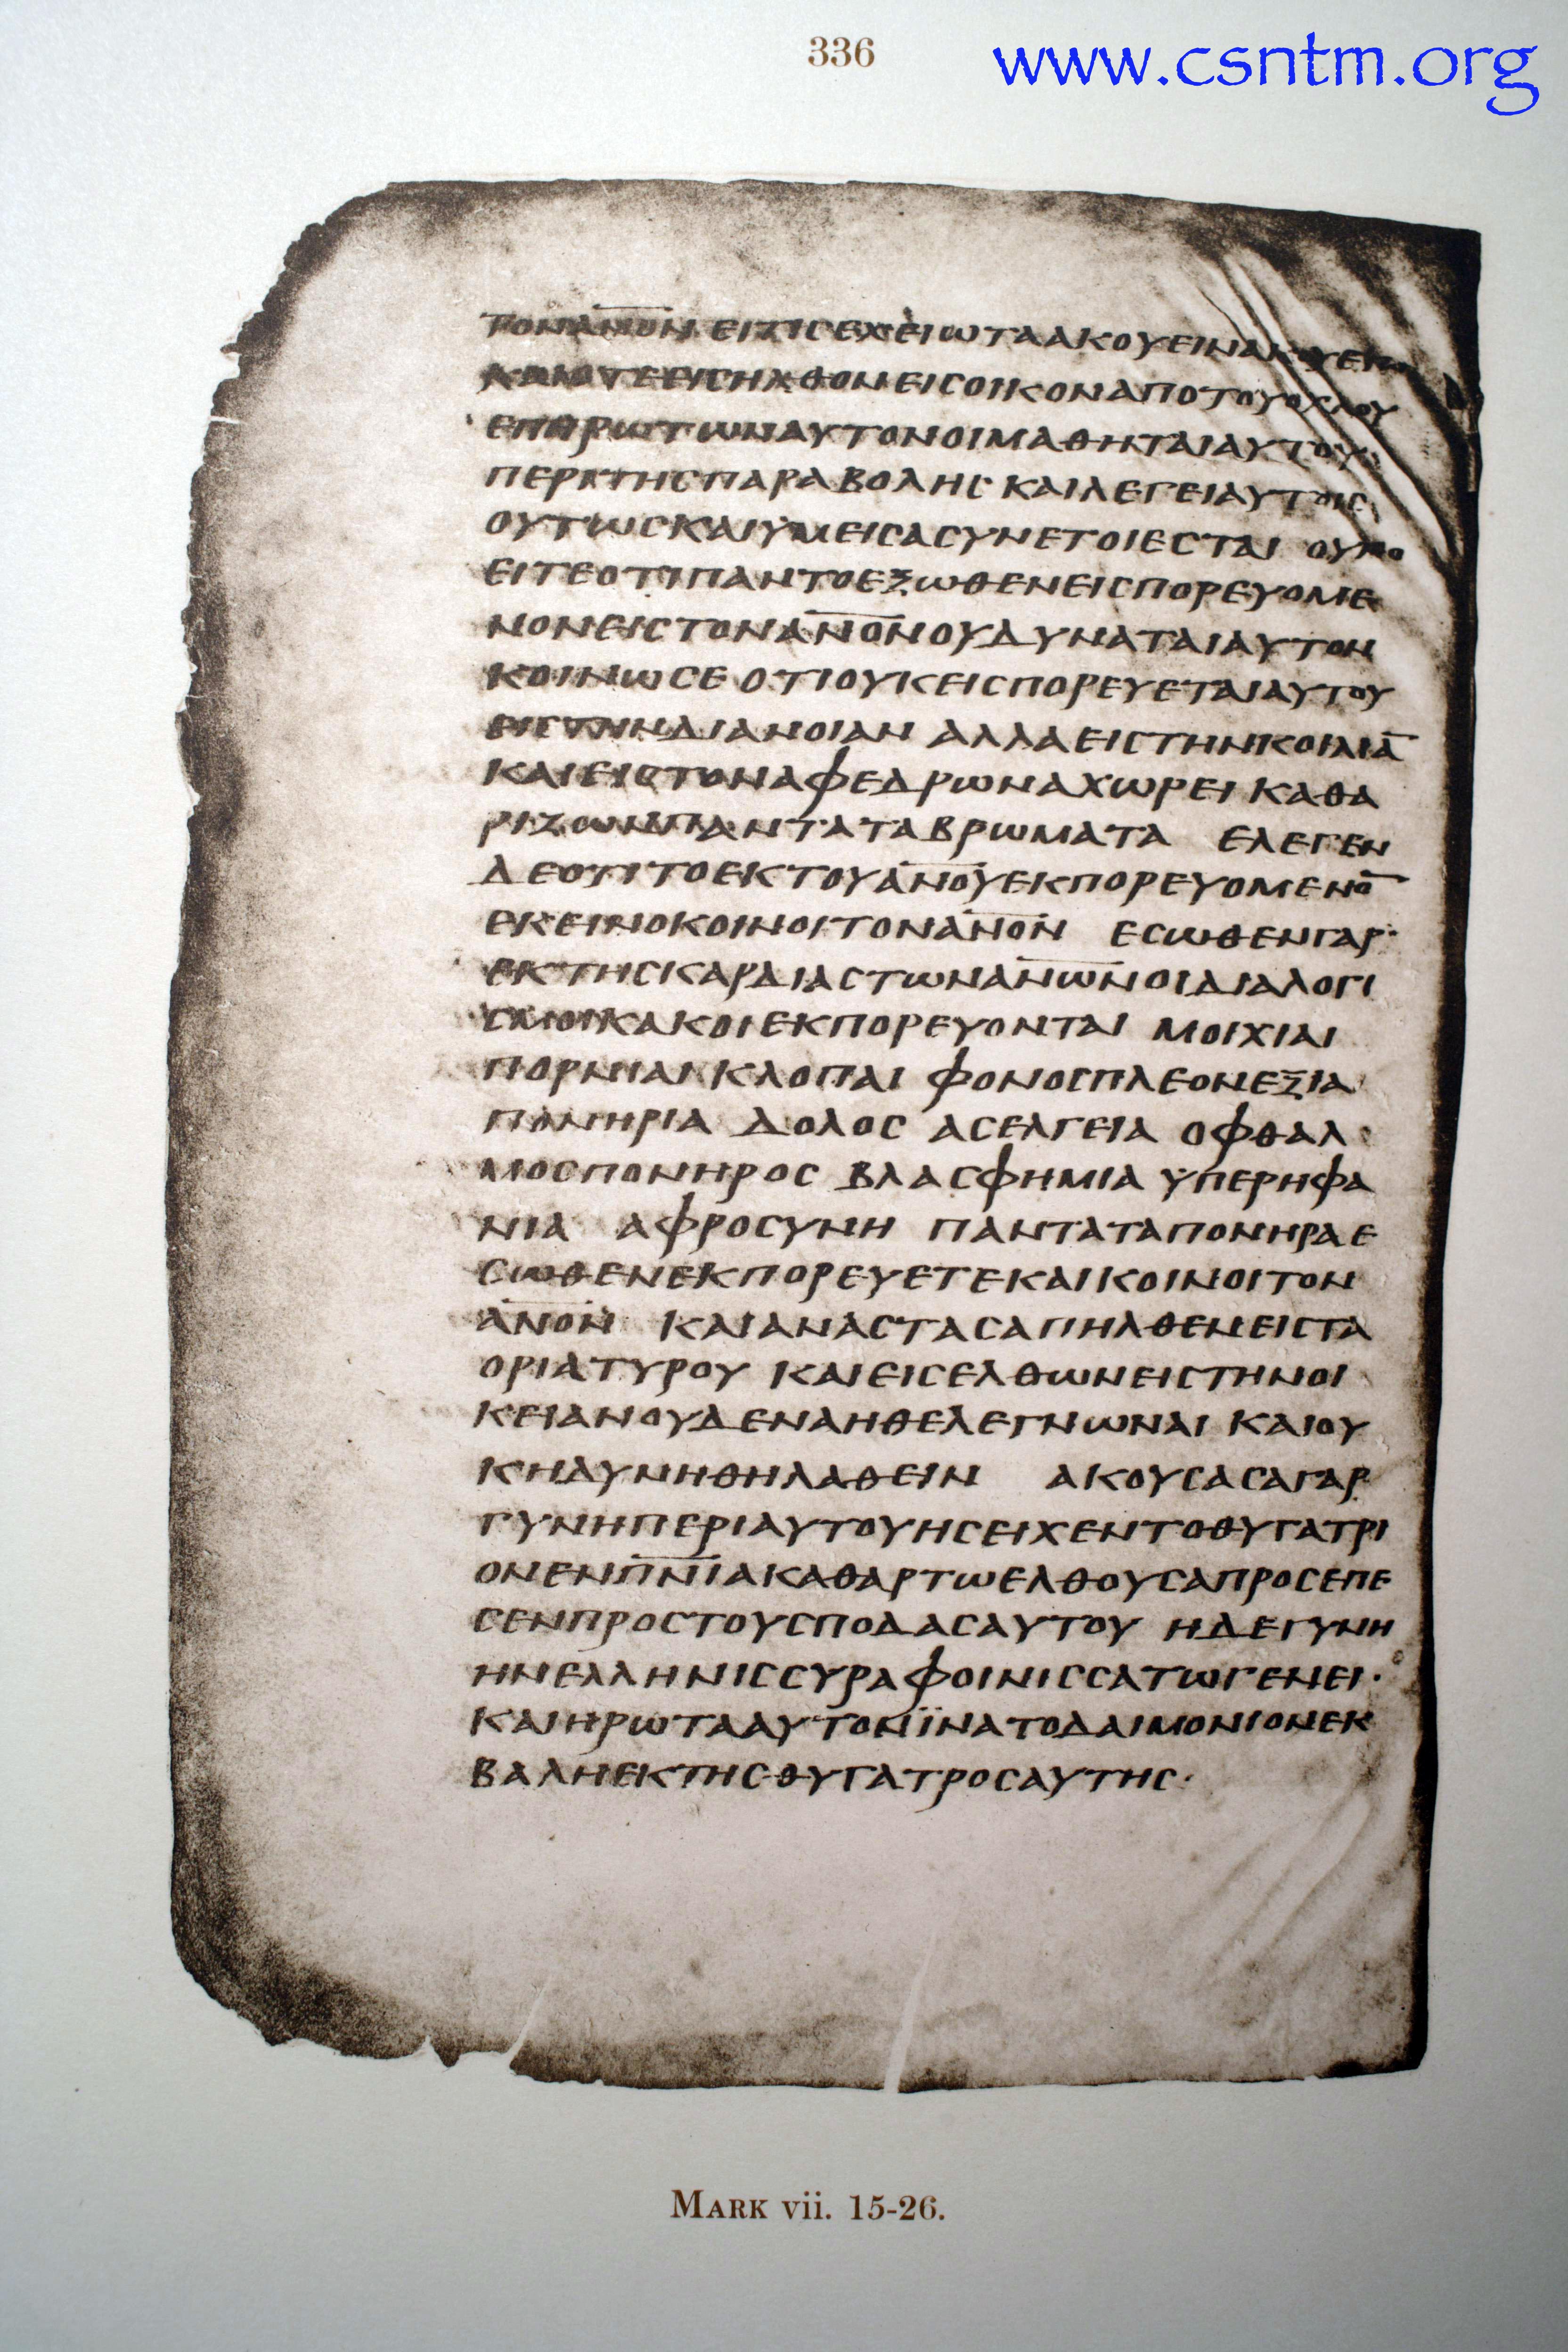 336
www.csntm.org
ΤΟΝΑΝΟΝ ΕΙ ΤΙΣ ΕΧΕΙ ΩΤΑΑΚΟΥΕΙΝΑΚΟΥΕΤΩ
ΚΑΙΟΤΕΕΙϹΗΛΘΟΝΕΙϹΟΙΚΟΝΑΠΟΤΟΥΟΧΛΟΥ
ΕΠΗΡΩΤΩΝΑΥΤΟΝΟΙΜΑΘΗΤΑΙΑΥΤΟΥ
ΠΕΡΙΤΗϹΠΑΡΑΒΟΛΗϹ ΚΑΙΛΕΓΕΙΑΥΤΟΙϹ
ΟΥΤΩϹΚΑΙΥΜΕΙϹΑϹΥΝΕΤΟΙΕϹΤΑΙ ΟΥΝΟ
ΕΙΤΕΟΤΙΠΑΝΤΟΕΞΩΘΕΝΕΙϹΠΟΡΕΥΟΜΕ
ΝΟΝΕΙϹΤΟΝΑ̅Ν̅Ο̅Ν̅ΟΥΔΥΝΑΤΑΙΑΥΤΟΝ
ΚΟΙΝΩϹΕ ΟΤΙΟΥΚΕΙϹΠΟΡΕΥΕΤΑΙΑΥΤΟΥ
ΕΙϹΤΗΝΔΙΑΝΟΙΑΝ ΑΛΛΑΕΙϹΤΗΝΚΟΙΛΙΑ̅
ΚΑΙΕΙϹΤΟΝΑΦΕΔΡΩΝΑΧΩΡΕΙ ΚΑΘΑ
ΡΙΖΩΝΠΑΝΤΑΤΑΒΡΩΜΑΤΑ ΕΛΕΓΕΝ
ΔΕΟΤΙΤΟΕΚΤΟΥΑ̅Ν̅Ο̅Υ̅ΕΚΠΟΡΕΥΟΜΕΝΟ̅
ΕΚΕΙΝΟΚΟΙΝΟΙΤΟΝΑ̅Ν̅Ο̅Ν̅ ΕϹΩΘΕΝΓΑΡ
ΕΚΤΗϹΚΑΡΔΙΑϹΤΩΝΑ̅Ν̅Ω̅Ν̅ΟΙΔΙΑΛΟΓΙ
ϹΜΟΙΚΑΚΟΙΕΚΠΟΡΕΥΟΝΤΑΙ ΜΟΙΧΙΑΙ
ΠΟΡΝΙΑΙ ΚΛΟΠΑΙ ΦΟΝΟϹΠΛΕΟΝΕΞΙΑ
ΠΟΝΗΡΙΑ ΔΟΛΟϹ ΑϹΕΛΓΕΙΑ ΟΦΘΑΛ
ΜΟϹΠΟΝΗΡΟϹ ΒΛΑϹΦΗΜΙΑ ΥΠΕΡΗΦΑ
ΝΙΑ ΑΦΡΟϹΥΝΗ ΠΑΝΤΑΤΑΠΟΝΗΡΑΕ
ϹΩΘΕΝΕΚΠΟΡΕΥΕΤΕΚΑΙΚΟΙΝΟΙΤΟΝ
Α̅Ν̅Ο̅Ν̅ ΚΑΙΑΝΑϹΤΑϹΑΠΗΛΘΕΝΕΙϹΤΑ
ΟΡΙΑΤΥΡΟΥ ΚΑΙΕΙϹΕΛΘΩΝΕΙϹΤΗΝΟΙ
ΚΕΙΑΝΟΥΔΕΝΑΗΘΕΛΕΓΝΩΝΑΙ ΚΑΙΟΥ
ΚΗΔΥΝΗΘΗΛΑΘΕΙΝ ΑΚΟΥϹΑϹΑΓΑΡ
ΓΥΝΗΠΕΡΙΑΥΤΟΥΗϹΕΙΧΕΝΤΟΘΥΓΑΤΡΙ
ΟΝΕΝΠ̅Ν̅Ι̅ΑΚΑΘΑΡΤΩΕΛΘΟΥϹΑΠΡΟϹΕΠΕ
ϹΕΝΠΡΟϹΤΟΥϹΠΟΔΑϹΑΥΤΟΥ ΗΔΕΓΥΝΗ
ΗΝΕΛΛΗΝΙϹϹΥΡΑΦΟΙΝΙϹϹΑΤΩΓΕΝΕΙ·
ΚΑΙΗΡΩΤΑΑΥΤΟΝΪΝΑΤΟΔΑΙΜΟΝΙΟΝΕΚ
ΒΑΛΗΕΚΤΗϹΘΥΓΑΤΡΟϹΑΥΤΗϹ·
MARK vii. 15-26.